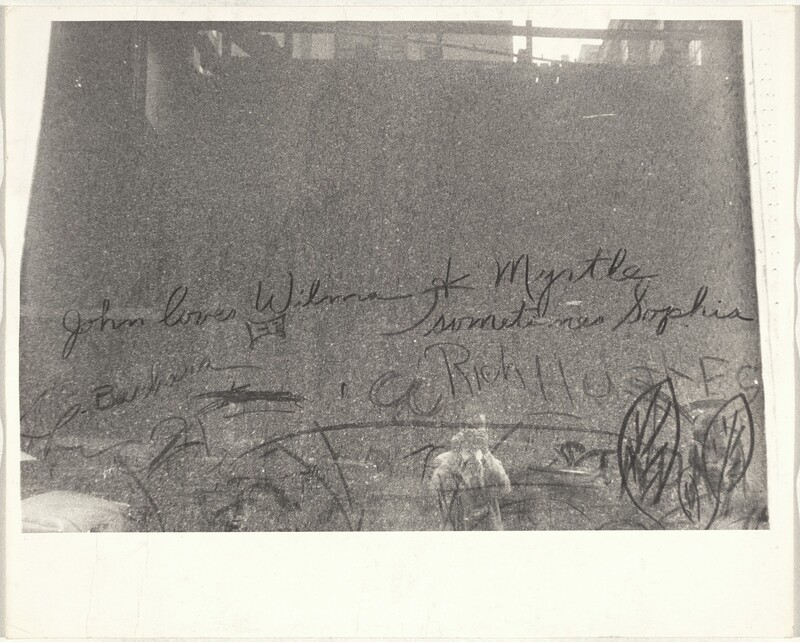 John loves Wilma & Myrtle
sometimes Sophia
Barbara
Rich Hughes